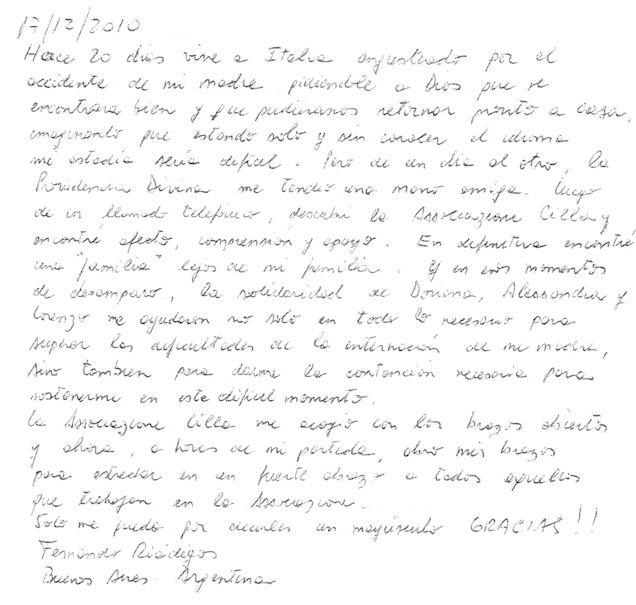 17/12/2010
Hace 20 días vine a Italia angustiado por el
accidente de mi madre pidiendole a Dios que se
encontrara bien y que pudieramos retornar pronto a casa,
imaginando que estando solo y sin conocer el idioma
mi estadía sería dificil. Pero de un día al otro, la
Providencia Divina me tendió una mano amiga. Luego
de un llamado telefónico, descubrí la Associazione Cilla y
encontré afecto, comprensión y apoyo. En definitiva encontré
una "familia" lejos de mi familia. Y en esos momentos
de desamparo, la solidaridad de Doriana, Alessandra y
Lorenzo me ayudaron no solo en todo lo necesario para
superar las dificultades de la internación de mi madre,
sino tambien para darme la contención necesaria para
sostenerme en este dificil momento.
La Associazione Cilla me acogió con los brazos abiertos
y ahora, a horas de mi partida, abro mis brazos
para estrechar en un fuerte abrazo a todos aquellos
que trabajan en la Associazione.
Solo me queda por decirles un mayúsculo GRACIAS!!
Fernando
Buenos Aires - Argentina